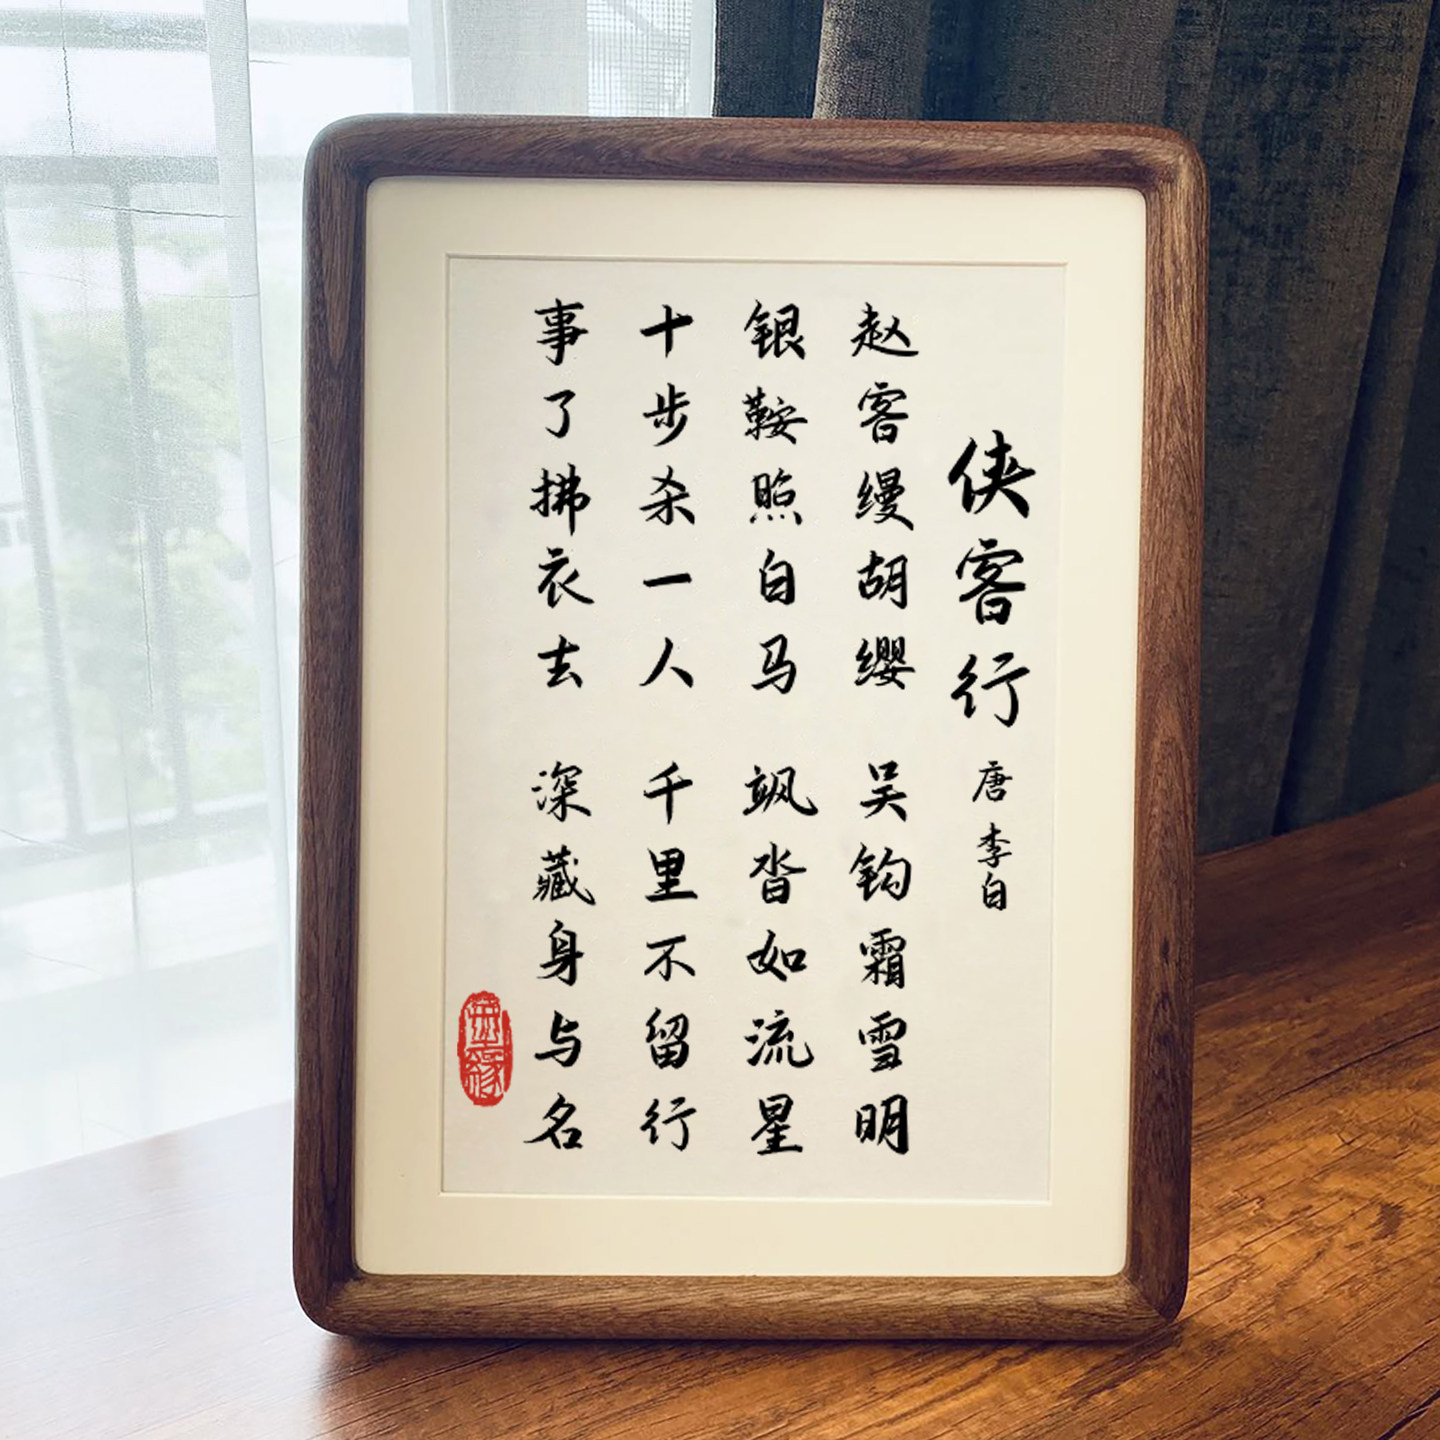 侠客行 唐 李白
赵客缦胡缨 吴钩霜雪明
银鞍照白马 飒沓如流星
十步杀一人 千里不留行
事了拂衣去 深藏身与名